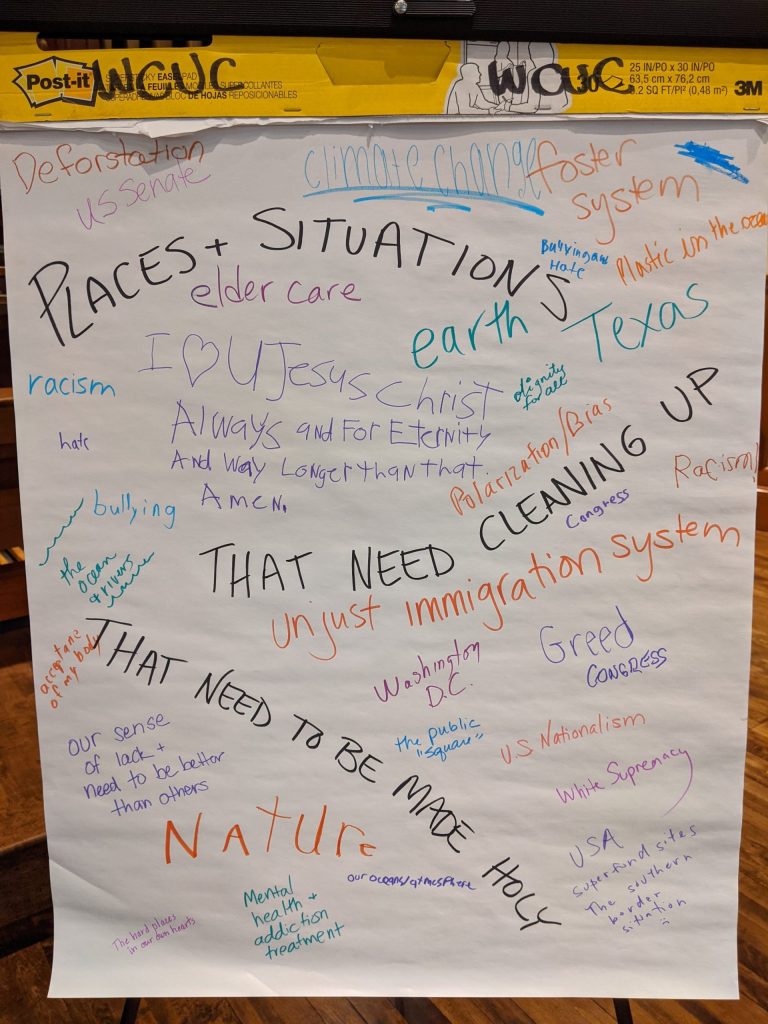 Post-it
WCUC
SUPER STICKY EASEL PAD
FEUILLES
BLOC DE HOJAS REPOSICIONABLES
WCUC
30
25 IN/PO x 30 IN/PO
63,5 cm x 76,2 cm
5.2 SQ FT/PI² (0,48 m²)
3M
Deforstation
US Senate
climate change
foster
system
PLACES + SITUATIONS
Bullying and
Hate
Plastic in the ocean
elder care
earth
Texas
I ♡ U Jesus Christ
Always and For Eternity
And Way Longer than that.
Amen.
racism
dignity
for all
hate
Polarization/Bias
Racism!
bullying
THAT NEED CLEANING UP
Congress
the
ocean
+ rivers
unjust immigration system
acceptance
of my body
THAT NEED TO BE MADE HOLY
Washington
D.C.
Greed
CONGRESS
our sense
of lack +
need to be better
than others
the public
"square"
U.S. Nationalism
White Supremacy
Nature
USA
superfund sites
The southern
border
situation
our oceans/atmosphere
Mental
health +
addiction
treatment
The hard places
in our own hearts